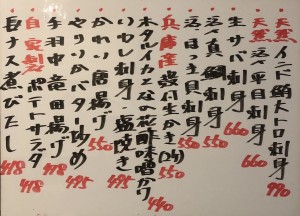 天然 インド鮪大トロ刺身 990
天然 活〆平目刺身 660
生サバ刺身 660
活〆真鯛刺身 550
活つぶ貝刺身 550
兵庫産 殻付生かき(2ヶ) 550
ホタルイカと菜の花酢味噌がけ 440
いわし刺身・塩焼き
かれい唐揚げ 550
やりいかバター炒め 495
手羽中竜田揚げ 495
自家製 ポテトサラダ 418
長ナス煮びたし 418